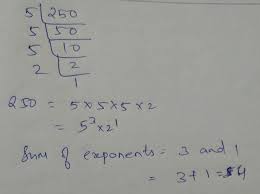 5 | 250
5 | 50
5 | 10
2 | 2
1
250 = 5 × 5 × 5 × 2
= 5³ × 2¹
Sum of exponents = 3 and 1
= 3 + 1 = 4